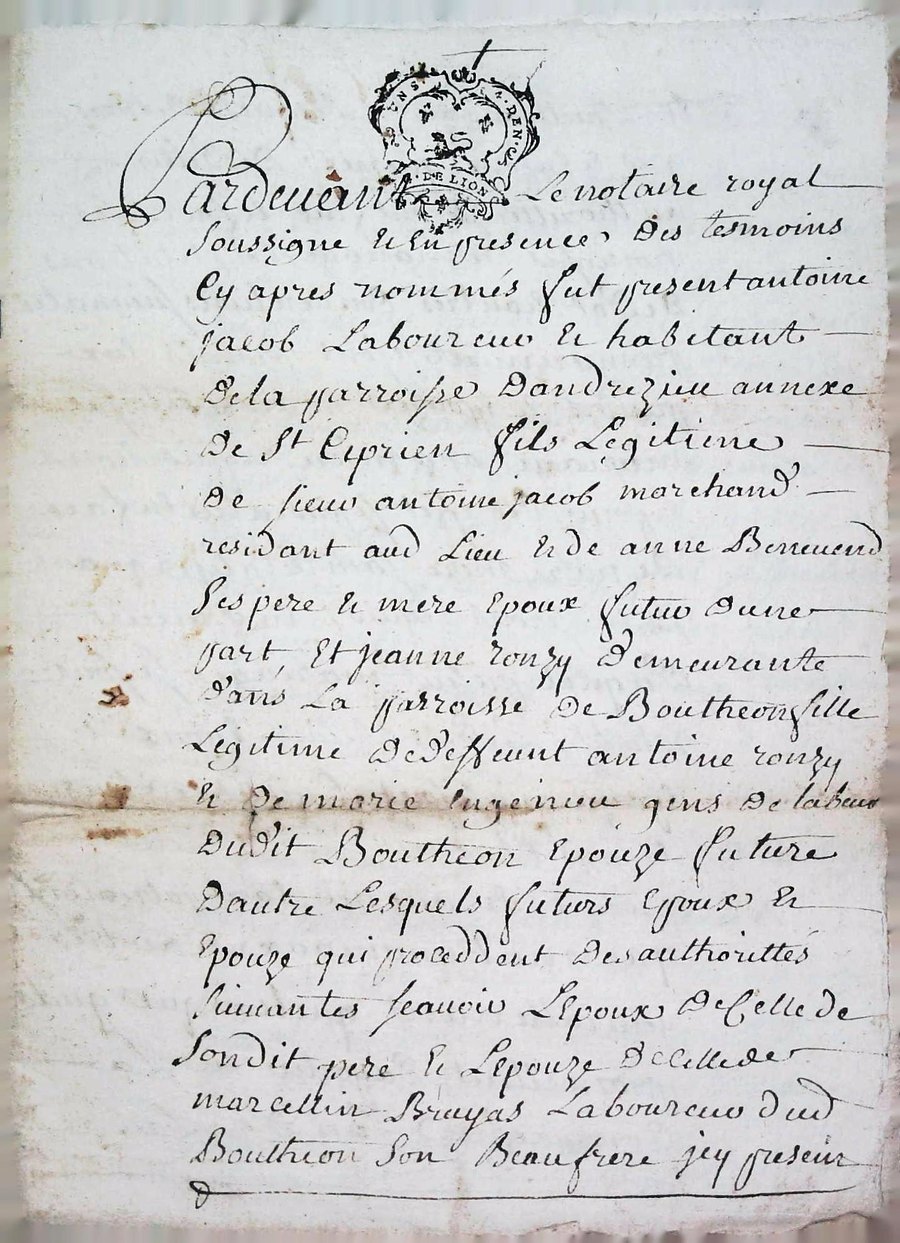 UN S. 4. DEN.
G. DE LION
Pardevant Le notaire royal
soussigne et En presence des tesmoins
Cy apres nommés fut present antoine
jacob Laboureur et habitant
de la parroisse Dandrezieu annexe
De St Ciprien fils Legitime
De sieur antoine jacob marchand
residant aud Lieu et de anne Benevend
ses pere et mere Epoux futur Dune
part, Et jeanne ronzy Demeurante
dans La parroisse De Boutheon fille
Legitime De deffeunt antoine ronzy
et De marie gens De labeur
Dudit Boutheon Epouze future
Dautre Lesquels futurs Epoux et
Epouze qui proceddent Des authorittés
suivantes scavoir LEpoux De Celle de
sondit pere et LEpouze De celle de
marcellin Bruyas Laboureur dud
Boutheon son Beaufrere jcy present